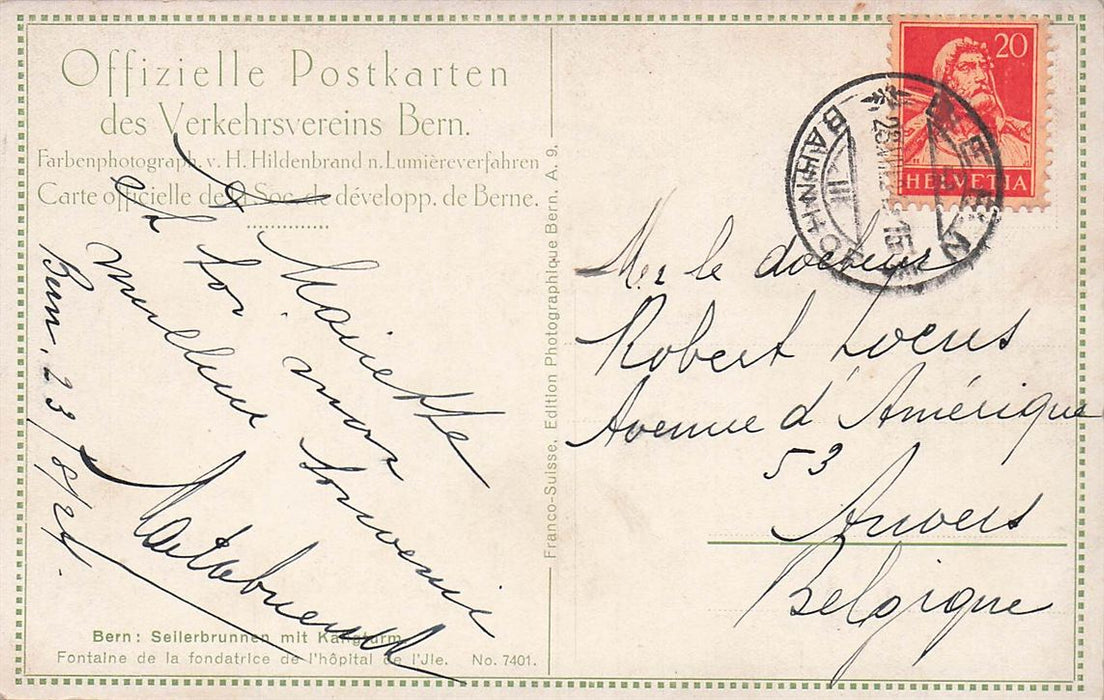 Offizielle Postkarten
des Verkehrsvereins Bern.
Farbenphotograph. v. H. Hildenbrand n. Lumièreverfahren
Carte officielle de la Soc. de développ. de Berne.
A Mariette
et toi mon
meilleur souvenir
Bern, 23/8/24
Bern: Seilerbrunnen mit Käfigturm
Fontaine de la fondatrice de l'hôpital de l'Jle. No. 7401.
Franco-Suisse, Edition Photographique Bern. A. 9.
20
HELVETIA
BERN
BAHNHOF
III
Mr le docteur
Robert
Avenue d'Amérique
53
Anvers
Belgique